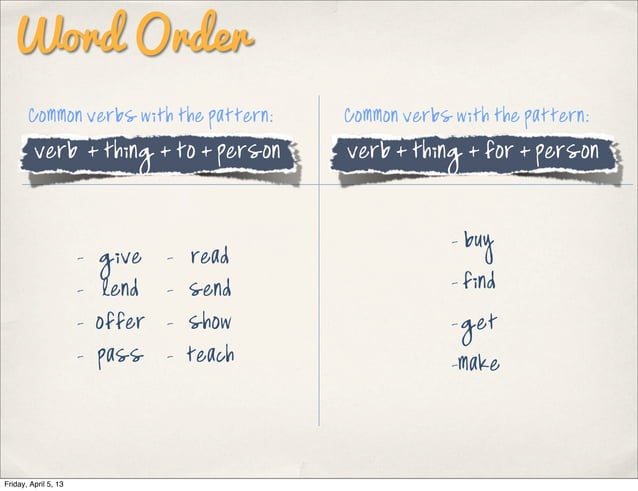 Word Order
Common verbs with the pattern:
verb + thing + to + person
- give - read
- lend - send
- offer - show
- pass - teach
Common verbs with the pattern:
verb + thing + for + person
- buy
- find
-get
-make
Friday, April 5, 13